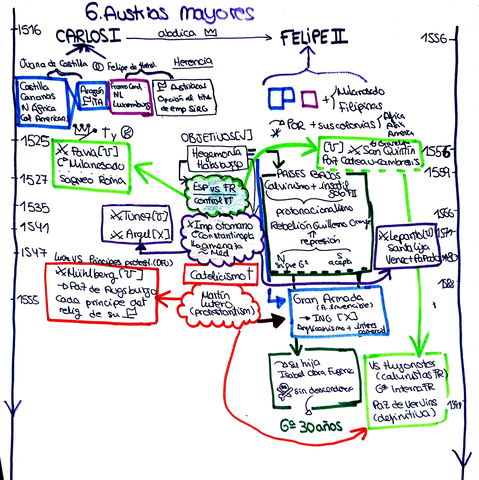 6. Austrias mayores
1516
CARLOS I
abdica
FELIPE II
1556
Juana de Castilla
Felipe de Habsb.
Herencia
Castilla
Canarias
N África
Col American.
Aragón
ITA
Franco Cond.
NL
Luxemburg
Austriacas
Opción al título
de emp SIRG
Milanesado
Filipinas
POR + sus colonias
África
Asia
América
OBJETIVOS [V]
Hegemonía
Habsburgo
1525
Pavia [V]
Cº Milanesado
Saqueo Roma
1527
ESP VS FR
control IT
[V]
San Quintín
Paz Cateau-Cambresis
1556
1559
PAISES BAJOS
Calvinismo +
protonacionalismo
Rebelión Guillermo Orange
represión
N
S
sigue Gª
acepta
1535
1541
Túnez [V]
Argel [X]
Imp otomano
Constantinopla
Hegemonía
Med
1571
Lepanto [V]
Santa Liga
Venec + Papado
1547
Luis VS Príncipes protest.
Mühlberg [V]
Paz de Augsburgo
cada príncipe det
relig de su
1555
Catolicismo
Martín
Lutero
(protestantism)
Gran Armada
(A. Invencible)
ING [X]
Anglicanismo + interés
comercial
1588
su hija
Isabel Clara Eugenia
sin descendencia
Gª 30 años
VS Hugonotes
(calvinistas FR)
Gª Interna FR
Paz de Vervins
(definitiva)